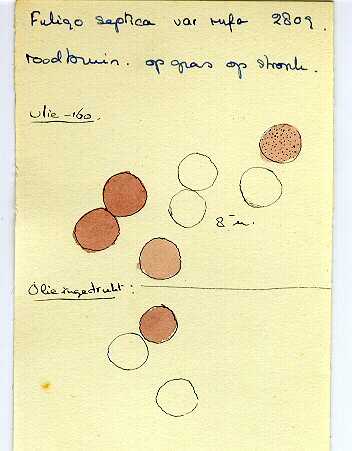 Fuligo septica var rufa 2809.
roodbruin. op gras op stronk.
olie - 160.
8-µ.
Olie ingedrukt :